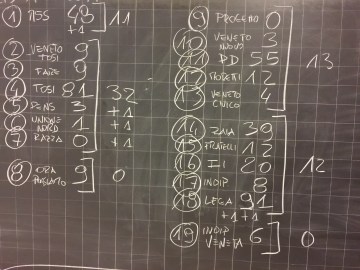 1 M5S 48 11
+1
2 VENETO TOSI 9
3 FARE 9
4 TOSI 81 32
5 PENS 3 +1
6 1 +1
7 RAZZA 0 +1
8 ORA 9 0
9 PROGETTO 0
10 VENETO NUOVO 3
11 PD 55 13
12 MORETTI 12
13 VENETO CIVICO 4
14 ZAIA 39
15 FRATELLI 12
16 FI 20 12
17 INDIP 8
18 LEGA 91
+1 +1
19 INDIP VENETA 6 0